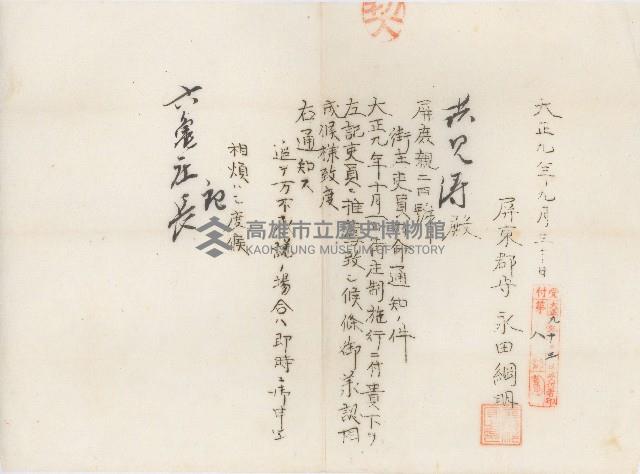 大正九年九月三十日
屏東郡守 永田綱明
洪見濤殿
屏庶親二四號
街庄吏員任命通知ノ件
大正九年十月一日街庄制施行ニ付貴下ヲ
左記吏員ニ推薦致シ候條御承認相
成候樣致度
右通知ス
追テ万不承諾ノ場合ハ即時御申出
相煩ハシ度候
記
六龜庄長
高雄市立歷史博物館
KAOHSIUNG MUSEUM OF HISTORY